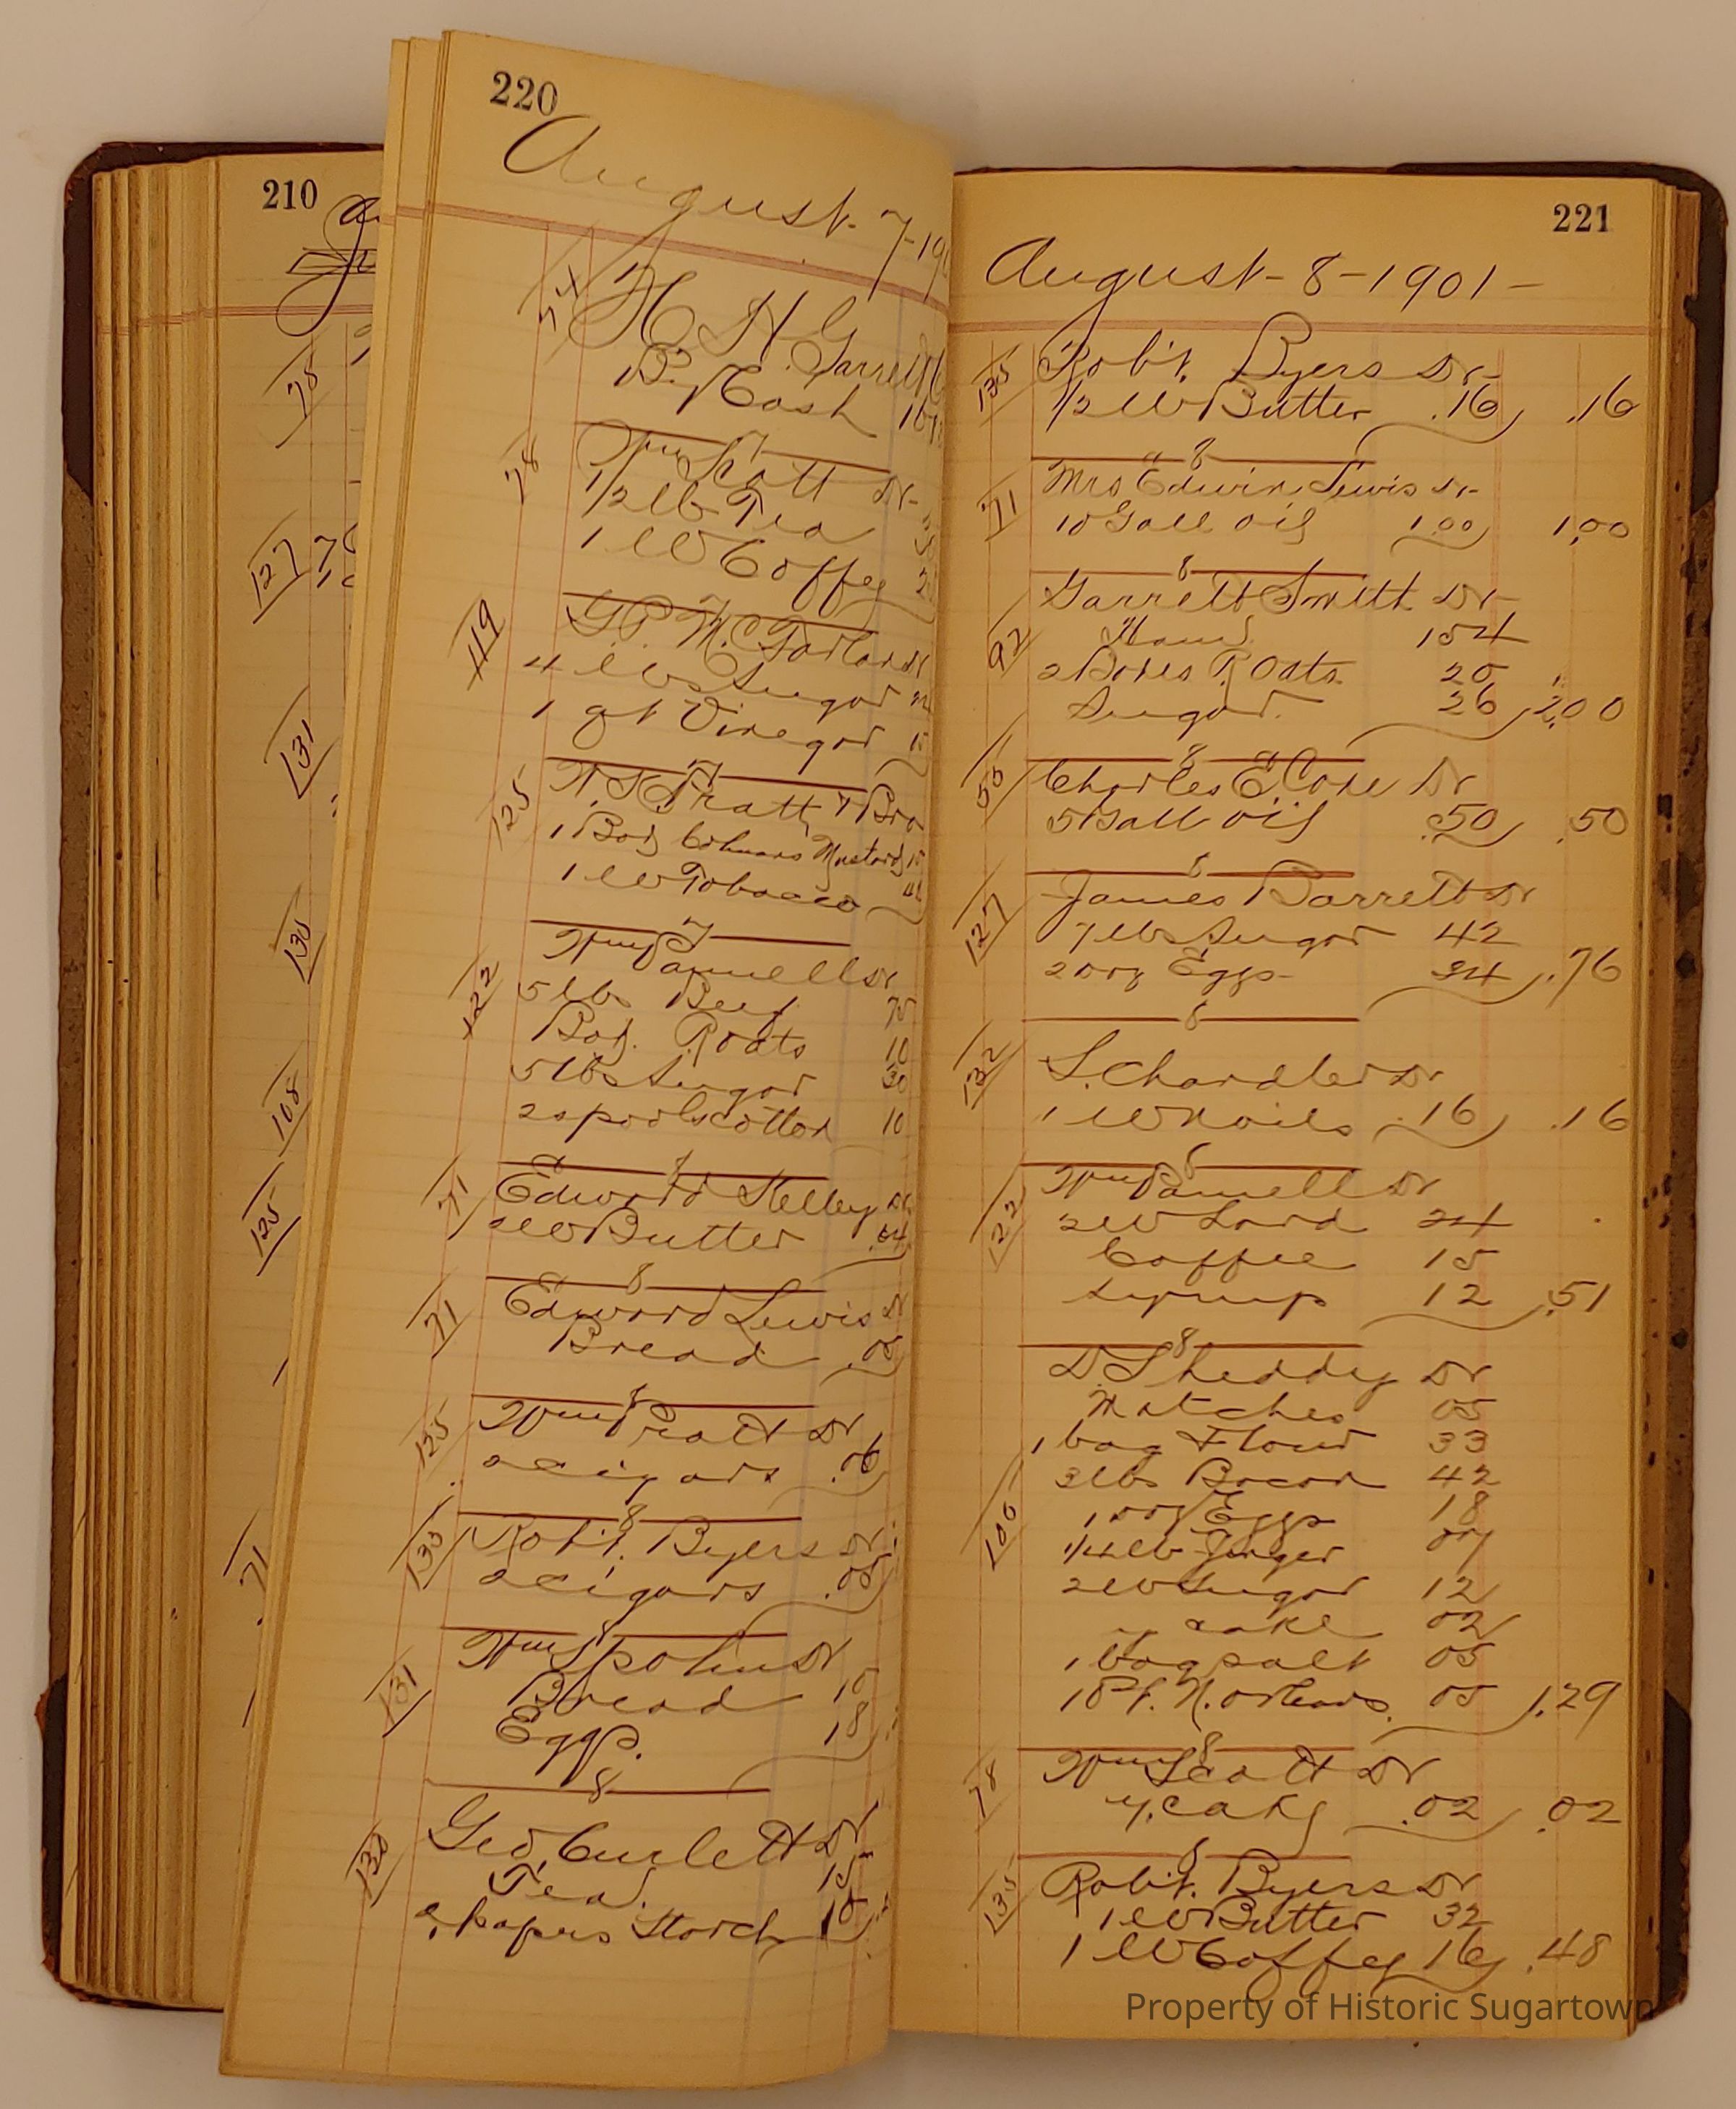 210
78
127
131
135
108
125
71
220
August 7-190
54 H H Garrett
By Cash
7
78 Wm Scott Dr
1/2 lb Tea
1 lb Coffee
7
119 G.P. McFarland
4 lbs Sugar
1 qt Vinegar 15
7
125 W.S. Pratt & Bro
1 Box Colmans Mustard 15
1 lb Tobacco
7
122 Wm Pannell Dr
5 lbs Beef 75
Box R. Oats 10
5 lbs Sugar 30
2 spools cotton 10
7
71 Edward Kelley Dr
2 lb Butter .64
8
71 Edward Lewis Dr
Bread .05
8
125 Wm Pratt Dr
2 cigars .06
8
135 Robt. Byers Dr
2 cigars .05
8
131 Wm Spohn Dr
Bread 10
Eggs. 18
8
130 Geo. Curlett Dr
Tea 15
2 papers Starch 10
221
August-8-1901-
135 Robt. Byers Dr-
1/2 lb Butter .16 .16
8
71 Mrs Edwin Lewis Dr-
10 Gall oil 1.00 1.00
8
92 Garrett Smith Dr-
Ham 154
2 Boxes R. Oats 20
Sugar. 26 2.00
8
55 Charles E. Coxe Dr
5 Gall oil .50 .50
8
127 James Barrett Dr
7 lbs Sugar 42
2 doz Eggs 34 .76
8
132 S. Chandler Dr
1 lb Nails .16 .16
8
122 Wm Pannell Dr
2 lb Lard 24
Coffee 15
Syrup 12 .51
8
100 D. Sheddy Dr
Matches 05
1 bag Flour 33
3 lbs Bacon 42
1 doz Eggs 18
1/4 lb Ginger 07
2 lb Sugar 12
y cake 02
1 bag salt 05
1 pt. N. Orleans. 05 1.29
8
78 Wm Scott Dr
y. cake .02 .02
8
135 Robt. Byers Dr
1 lb Butter 32
1 lb Coffee 16 .48
Property of Historic Sugartown